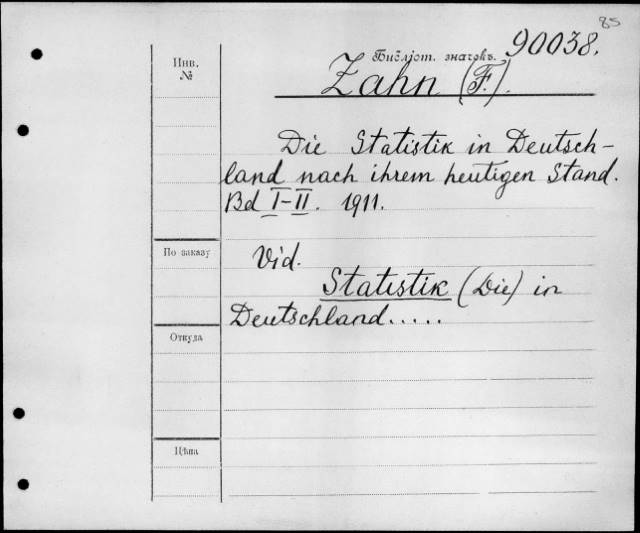 85
Инв.
№
Библіот. значокъ. 90038.
Zahn (F.).
Die Statistik in Deutsch-
land nach ihrem heutigen Stand.
Bd I-II. 1911.
По заказу
Vid.
Statistik (Die) in
Deutschland.....
Откуда
Цѣна